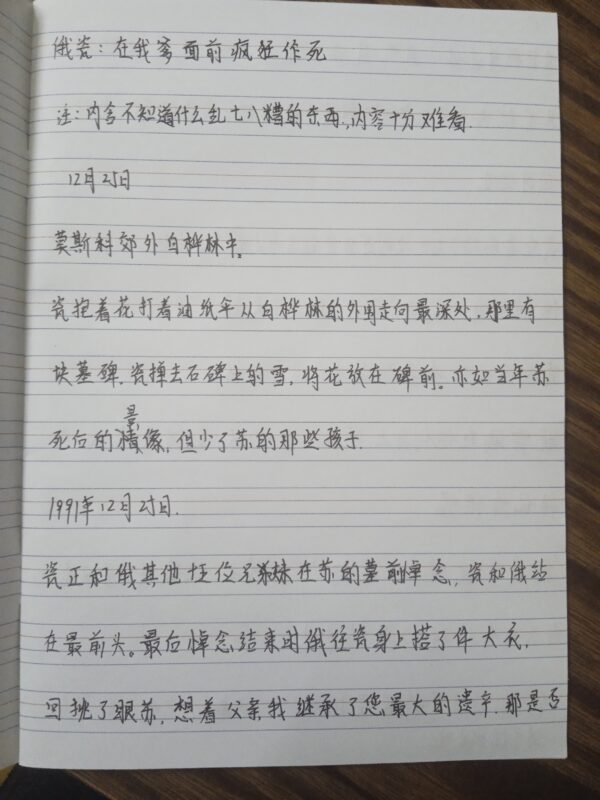 俄瓷：在我爹面前疯狂作死
注：内含不知道什么乱七八糟的东西，内容十分难看.
12月25日
莫斯科郊外白桦林中。
瓷抱着花打着油纸伞从白桦林的外围走向最深处，那里有
块墓碑.瓷掸去石碑上的雪，将花放在碑前。亦如当年苏
死后的景像，但少了苏的那些孩子.
1991年12月25日.
瓷正和俄其他位兄妹在苏的墓前悼念，瓷和俄站
在最前头。最后悼念结束时俄往瓷身上搭了件大衣，
回挑了眼苏，想着父亲我继承了您最大的遗产.那是否